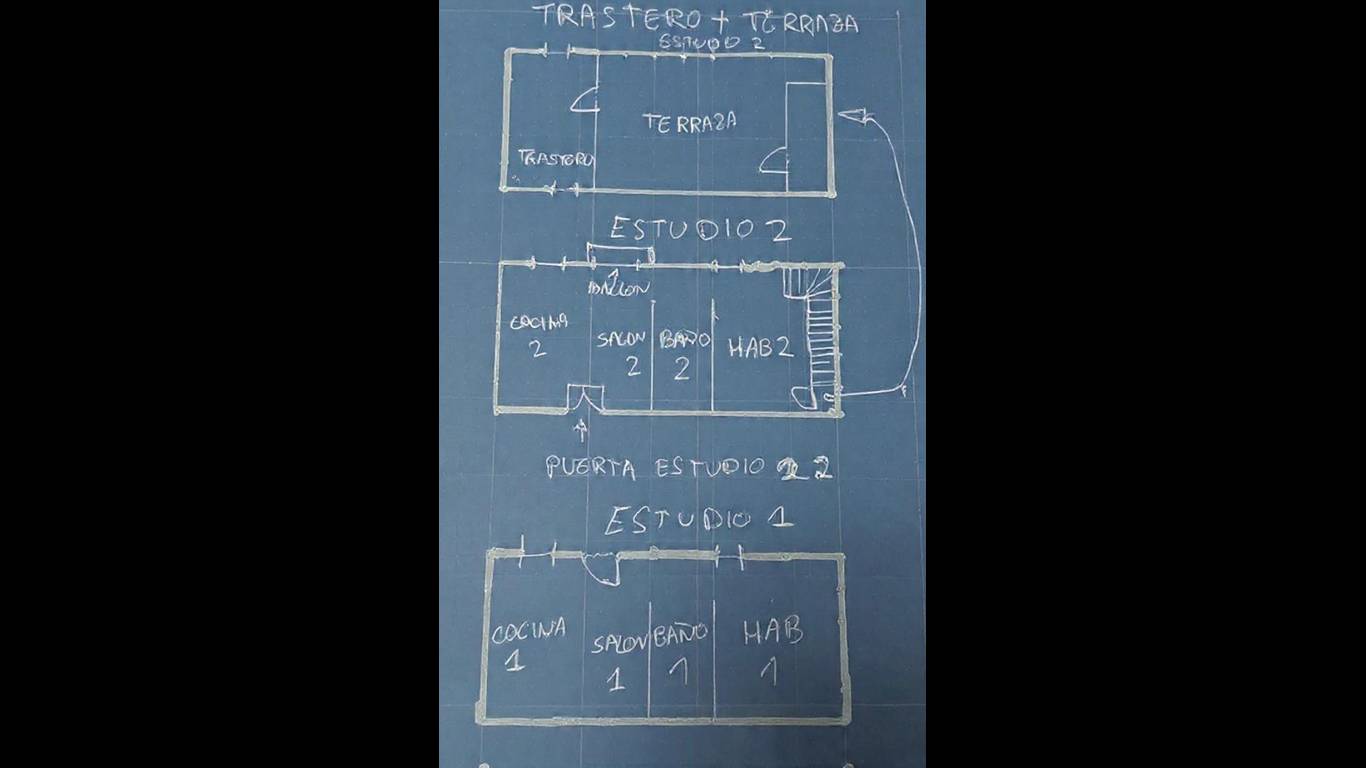 TRASTERO + TERRAZA
ESTUDIO 2
TERRAZA
TRASTERO
ESTUDIO 2
BALCON
COCINA
2
SALON
2
BAÑO
2
HAB 2
PUERTA ESTUDIO 2 2
ESTUDIO 1
COCINA
1
SALON
1
BAÑO
1
HAB
1